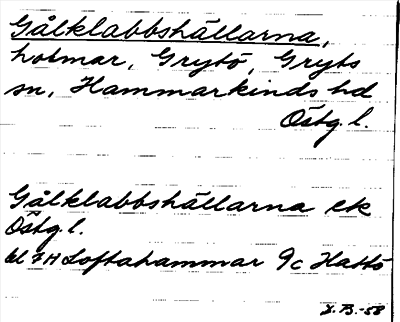 Gålklabbshällarna,
holmar, Grytö, Gryts
sn, Hammarkinds hd
Östg. l.
Gålklabbshällarna ek
Östg. l.
bl 7H Loftahammar 9c Hattö
I. B. -58